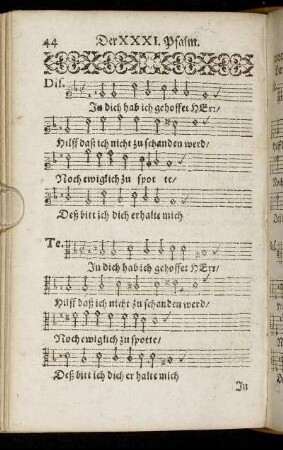 44 Der XXXI. Psalm.
Dis.
In dich hab ich gehoffet HErr/
Hilff daß ich nicht zu schanden werd/
Noch ewiglich zu spot te/
Deß bitt ich dich erhalte mich
Te.
In dich hab ich gehoffet HErr/
Hilff daß ich nicht zu schanden werd/
Noch ewiglich zu spotte/
Deß bitt ich dich er halte mich
In